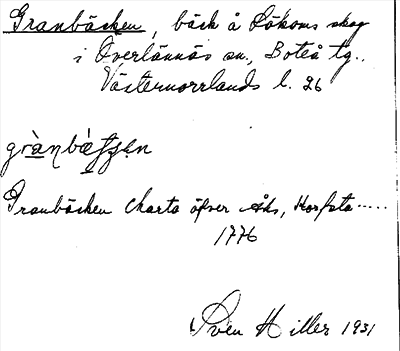 Granbäcken, bäck å Lökoms skog
i Överlännäs sn., Boteå tg.,
Västernorrlands l. 26
Granbäcken Charta öfver Åhs, Korsta.....
1776
Sven Hiller 1931